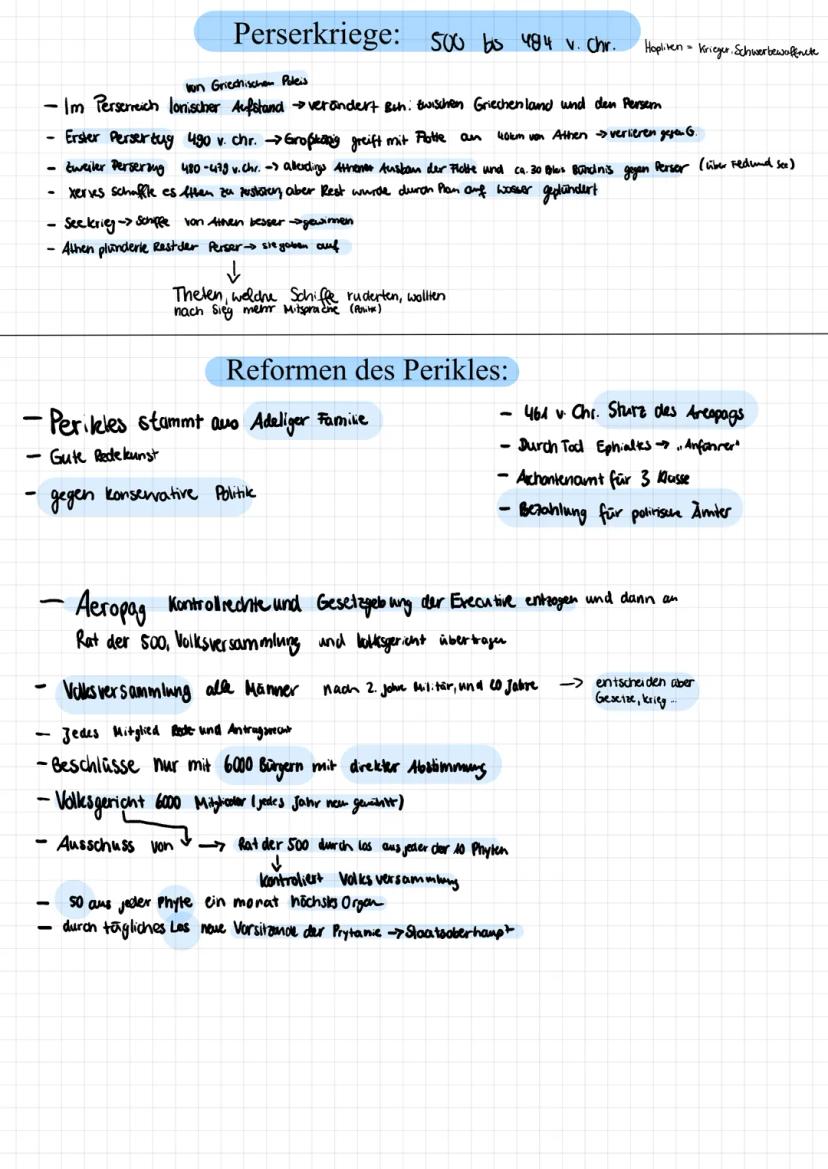 Perserkriege: 500 bis 494 v. Chr.
Hopliten = Krieger, Schwerbewaffnete
von Griechischen Poleis
- Im Perserreich Ionischer Aufstand → verändert Bzh. zwischen Griechenland und den Persern
- Erster Perserzug 490 v. Chr. → Großkönig greift mit Flotte an 40km von Athen → verlieren gegen G.
- Zweiter Perserzug 480-479 v. Chr. → allerdings Athener Ausbau der Flotte und ca. 30 Poleis Bündnis gegen Perser (über und See)
- Xerxes schaffte es Athen zu zerstören, aber Rest wurde durch Plan auf Wasser geplündert
- Seekrieg → Schiffe von Athen besser → gewinnen
- Athen plünderte Rest der Perser → sie gaben auf
↓
Theten, welche Schiffe ruderten, wollten
nach Sieg mehr Mitsprache (Politik)
Reformen des Perikles:
- Perikles stammt aus Adeliger Familie
- Gute Redekunst
- gegen konservative Politik
- 461 v. Chr. Sturz des Areopags
- Durch Tod Ephialtes → "Anführer"
- Achontenamt für 3 Klasse
- Bezahlung für politische Ämter
- Aeropag Kontrollrechte und Gesetzgebung der Executive entzogen und dann an
Rat der 500, Volksversammlung und Volksgericht übertragen
- Volksversammlung alle Männer nach 2. Jahre Militär, und 20 Jahre → entscheiden über
Gesetze, krieg ...
- Jedes Mitglied Rede und Antragsrecht
- Beschlüsse nur mit 6000 Bürgern mit direkter Abstimmung
- Volksgericht 6000 Mitglieder (jedes Jahr neu gewählt)
- Ausschuss von → Rat der 500 durch Los aus jeder der 10 Phylen
↓
kontroliert Volksversammlung
- 50 aus jeder Phyle ein monat höchstes Organ
- durch tägliches Los neue Vorsitzende der Prytanie → Staatsoberhaupt